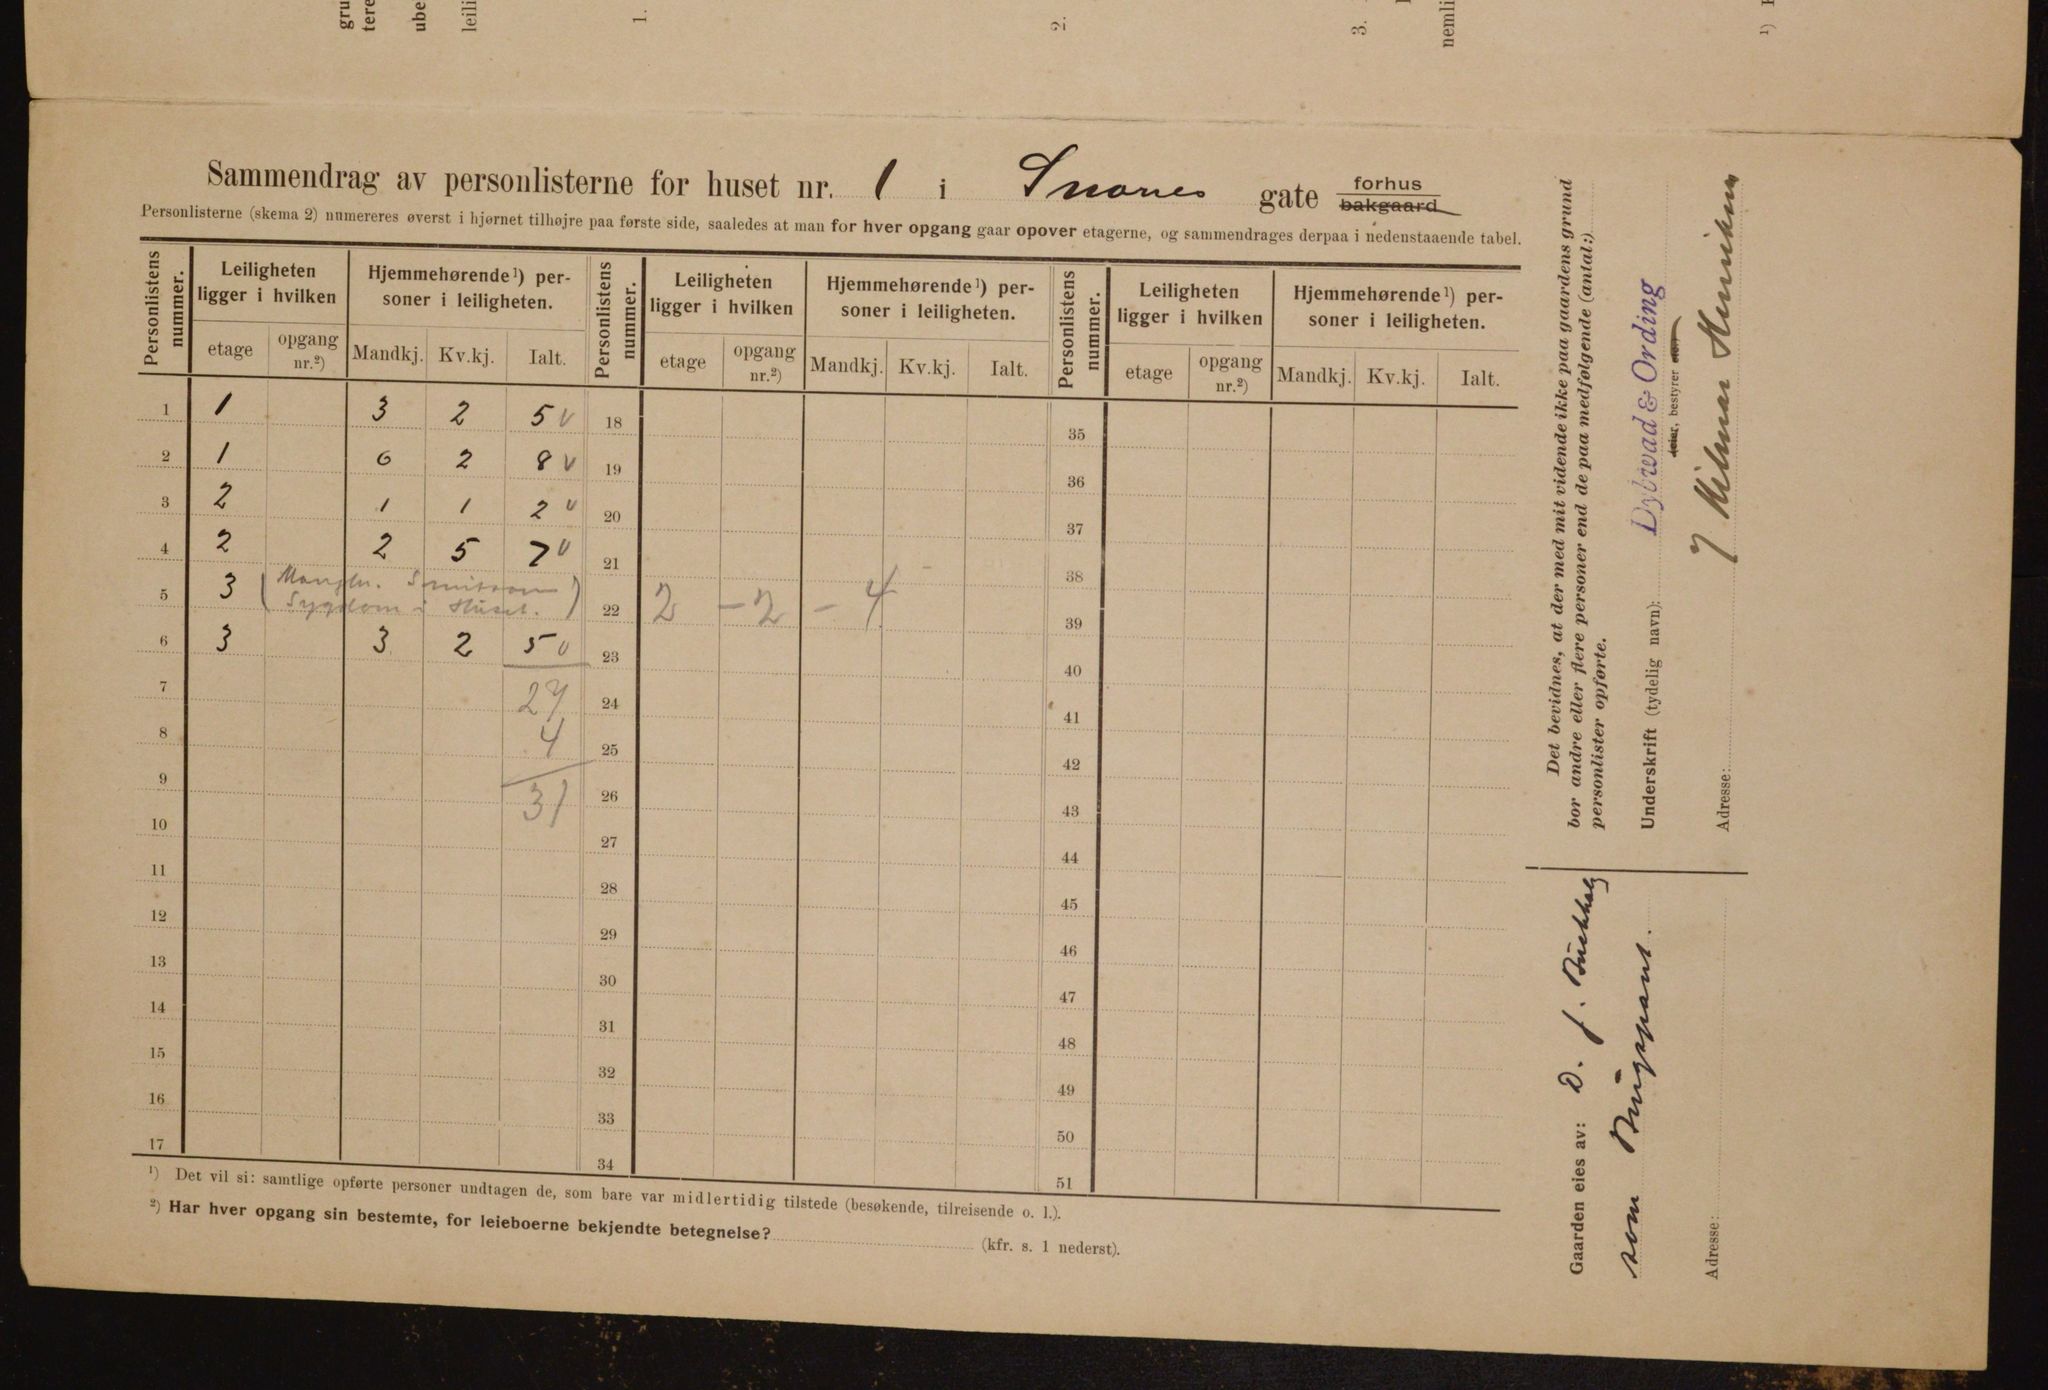 gru
tere
ube
leili
1.
2.
3.
nemli
¹)
Sammendrag av personlisterne for huset nr. 1 i Snares gate forhus
bakgaard
Personlisterne (skema 2) numereres øverst i hjørnet tilhøjre paa første side, saaledes at man for hver opgang gaar opover etagerne, og sammendrages derpaa i nedenstaaende tabel.
Personlistens nummer. Leiligheten ligger i hvilken Hjemmehørende¹) personer i leiligheten. Personlistens nummer. Leiligheten ligger i hvilken Hjemmehørende¹) personer i leiligheten. Personlistens nummer. Leiligheten ligger i hvilken Hjemmehørende¹) personer i leiligheten.
etage opgang nr.²) Mandkj. Kv.kj. Ialt. etage opgang nr.²) Mandkj. Kv.kj. Ialt. etage opgang nr.²) Mandkj. Kv.kj. Ialt.
1 1 3 2 5 v 18 35
2 1 6 2 8 v 19 36
3 2 1 1 2 v 20 37
4 2 2 5 7 v 21 38
5 3 (Mangler. Smitsom Sygdom i Huset.) 22 2 - 2 - 4 39
6 3 3 2 5 v 23 40
7 27 24 41
8 4 25 42
9 31 26 43
10 27 44
11 28 45
12 29 46
13 30 47
14 31 48
15 32 49
16 33 50
17 34 51
¹) Det vil si: samtlige opførte personer undtagen de, som bare var midlertidig tilstede (besøkende, tilreisende o. l.).
²) Har hver opgang sin bestemte, for leieboerne bekjendte betegnelse? (kfr. s. 1 nederst).
Det bevidnes, at der med mit vidende ikke paa gaardens grund
bor andre eller flere personer end de paa medfølgende (antal:)
personlister opførte.
Underskrift (tydelig navn): Dybwad & Ording
eier, bestyrer
Hilmar Henriksen
Adresse:
Gaarden eies av: D. J.
som Brugspant.
Adresse: